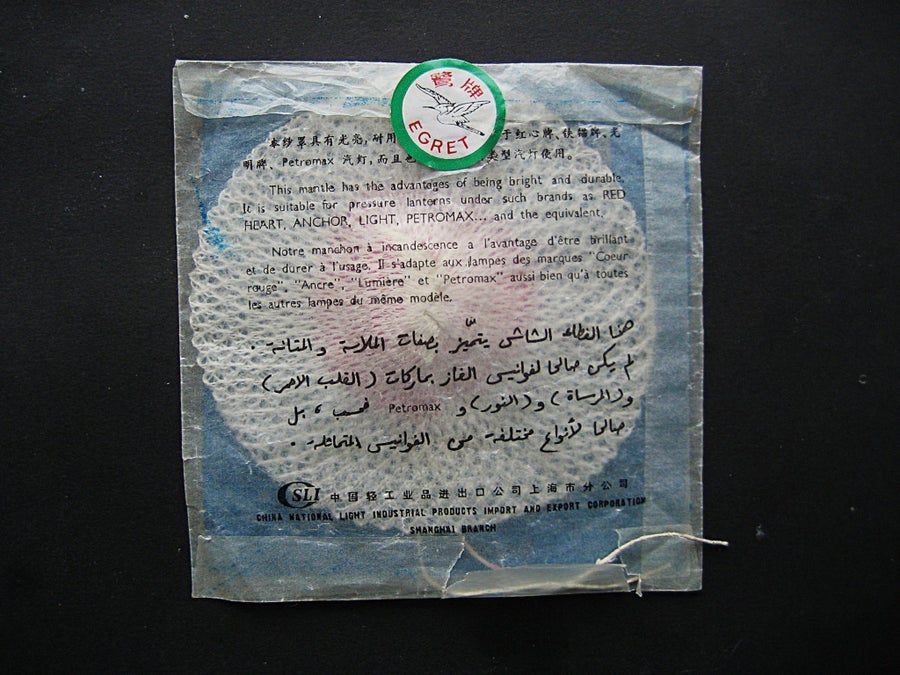 鷺牌
EGRET
本纱罩具有光亮,耐用 于红心牌、铁锚牌、光
明牌、Petromax 汽灯,而且 类型汽灯使用。
This mantle has the advantages of being bright and durable.
It is suitable for pressure lanterns under such brands as RED
HEART, ANCHOR, LIGHT, PETROMAX... and the equivalent.
Notre manchon à incandescence a l'avantage d'être brillant
et de durer à l'usage. Il s'adapte aux lampes des marques "Coeur
rouge" "Ancre", "Lumière" et "Petromax" aussi bien qu'a toutes
les autres lampes du même modèle.
هذا الغطاء الشاشى يتميّز بصفات الملاسة والمتانة .
لم يكن صالحا لفوانيس الغاز بماركات (القلب الاحمر)
و(المرساة) و(النور) و Petromax فحسب ، بل
صالحا لأنواع مختلفة من الفوانيس المتماثلة .
SLI 中国轻工业品进出口公司上海市分公司
CHINA NATIONAL LIGHT INDUSTRIAL PRODUCTS IMPORT AND EXPORT CORPORATION
SHANGHAI BRANCH